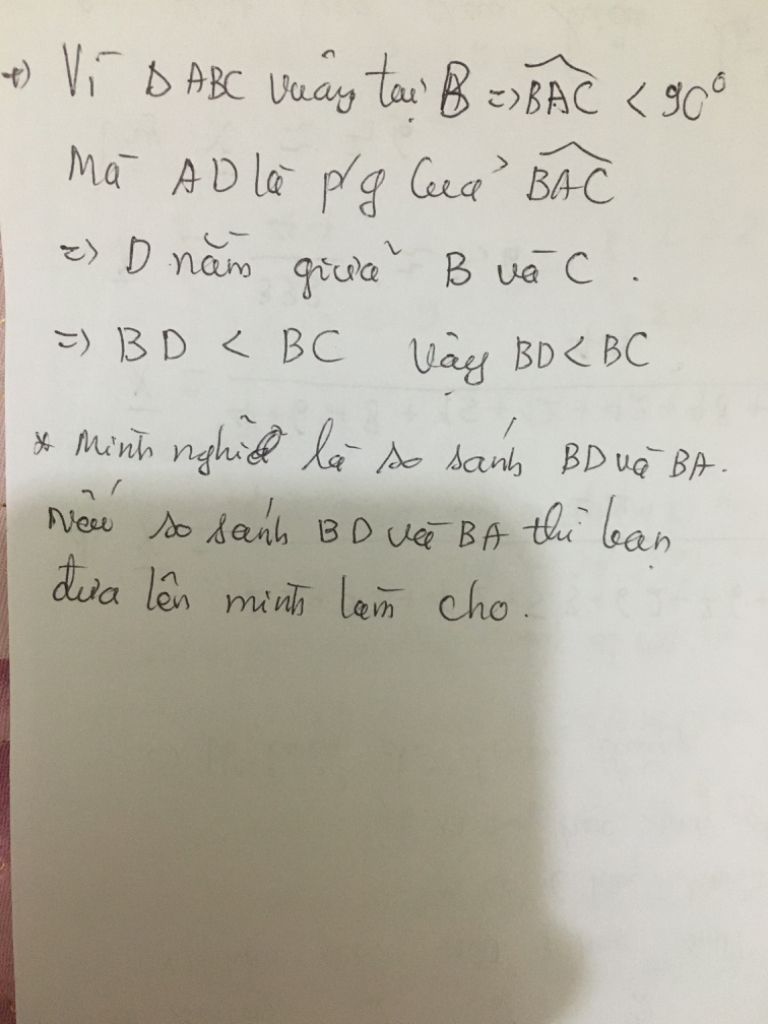 +) Vì Δ ABC vuông tại B => BAC < 90°
Mà AD là p/g của BAC
=> D nằm giữa B và C .
=> BD < BC Vậy BD < BC
* Mình nghĩ là so sánh BD và BA .
Nếu so sánh BD và BA thì bạn
đưa lên mình làm cho .